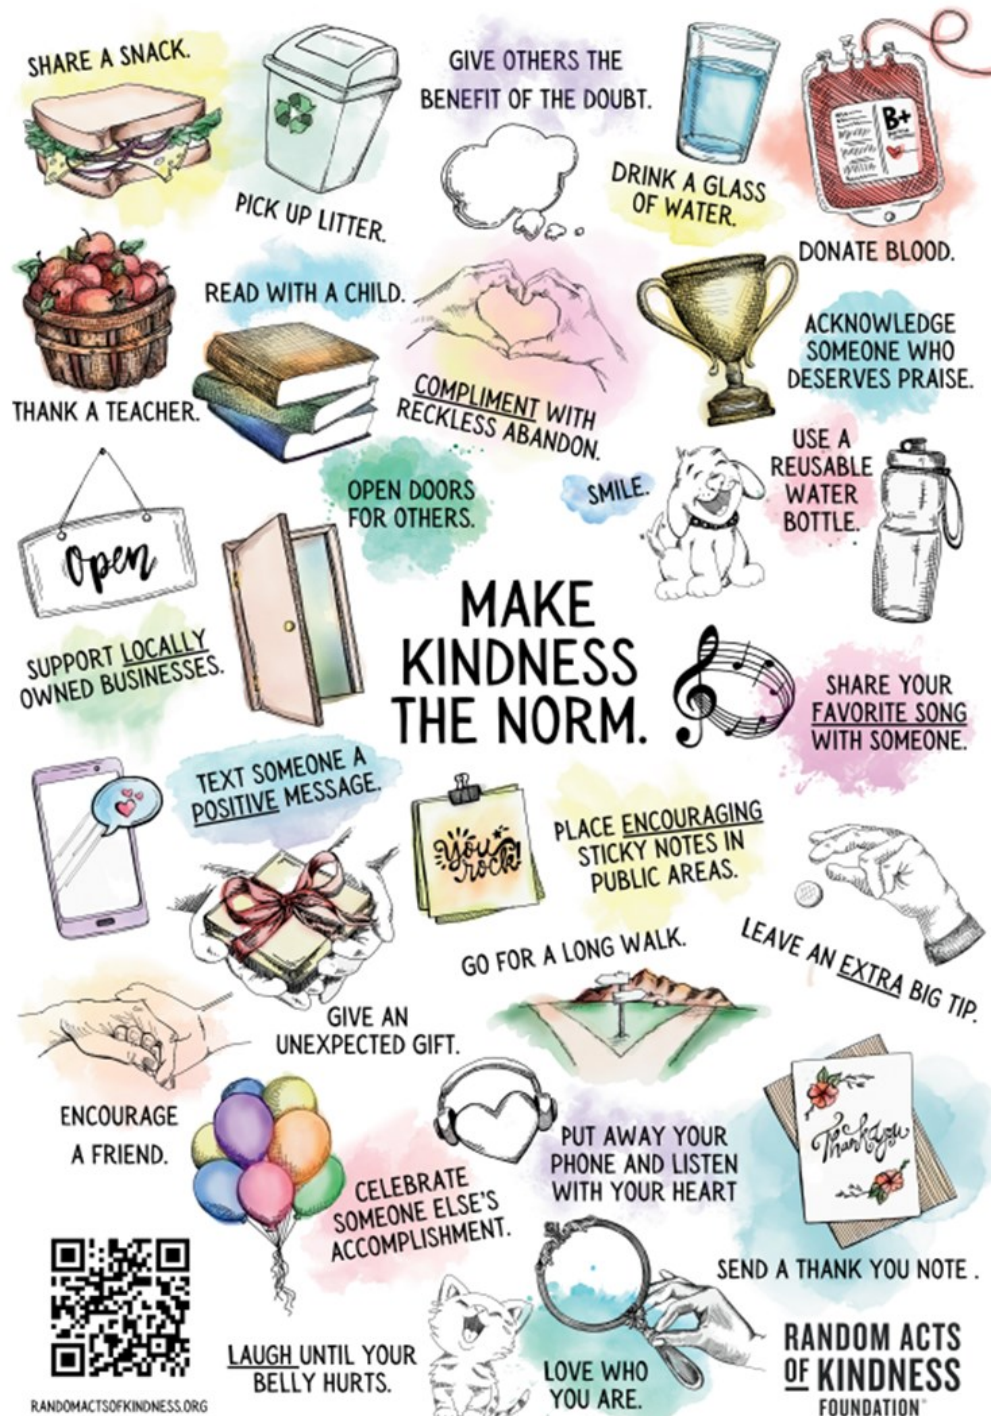 SHARE A SNACK.
GIVE OTHERS THE
BENEFIT OF THE DOUBT.
B+
PICK UP LITTER.
DRINK A GLASS
OF WATER.
DONATE BLOOD.
READ WITH A CHILD.
THANK A TEACHER.
COMPLIMENT WITH
RECKLESS ABANDON.
ACKNOWLEDGE
SOMEONE WHO
DESERVES PRAISE.
Open
OPEN DOORS
FOR OTHERS.
SMILE.
USE A
REUSABLE
WATER
BOTTLE.
SUPPORT LOCALLY
OWNED BUSINESSES.
MAKE
KINDNESS
THE NORM.
SHARE YOUR
FAVORITE SONG
WITH SOMEONE.
TEXT SOMEONE A
POSITIVE MESSAGE.
You
rock
PLACE ENCOURAGING
STICKY NOTES IN
PUBLIC AREAS.
LEAVE AN EXTRA BIG TIP.
GO FOR A LONG WALK.
GIVE AN
UNEXPECTED GIFT.
ENCOURAGE
A FRIEND.
CELEBRATE
SOMEONE ELSE'S
ACCOMPLISHMENT.
PUT AWAY YOUR
PHONE AND LISTEN
WITH YOUR HEART
Thank you
SEND A THANK YOU NOTE .
LAUGH UNTIL YOUR
BELLY HURTS.
LOVE WHO
YOU ARE.
RANDOMACTSOFKINDNESS.ORG
RANDOM ACTS
OF KINDNESS
FOUNDATION